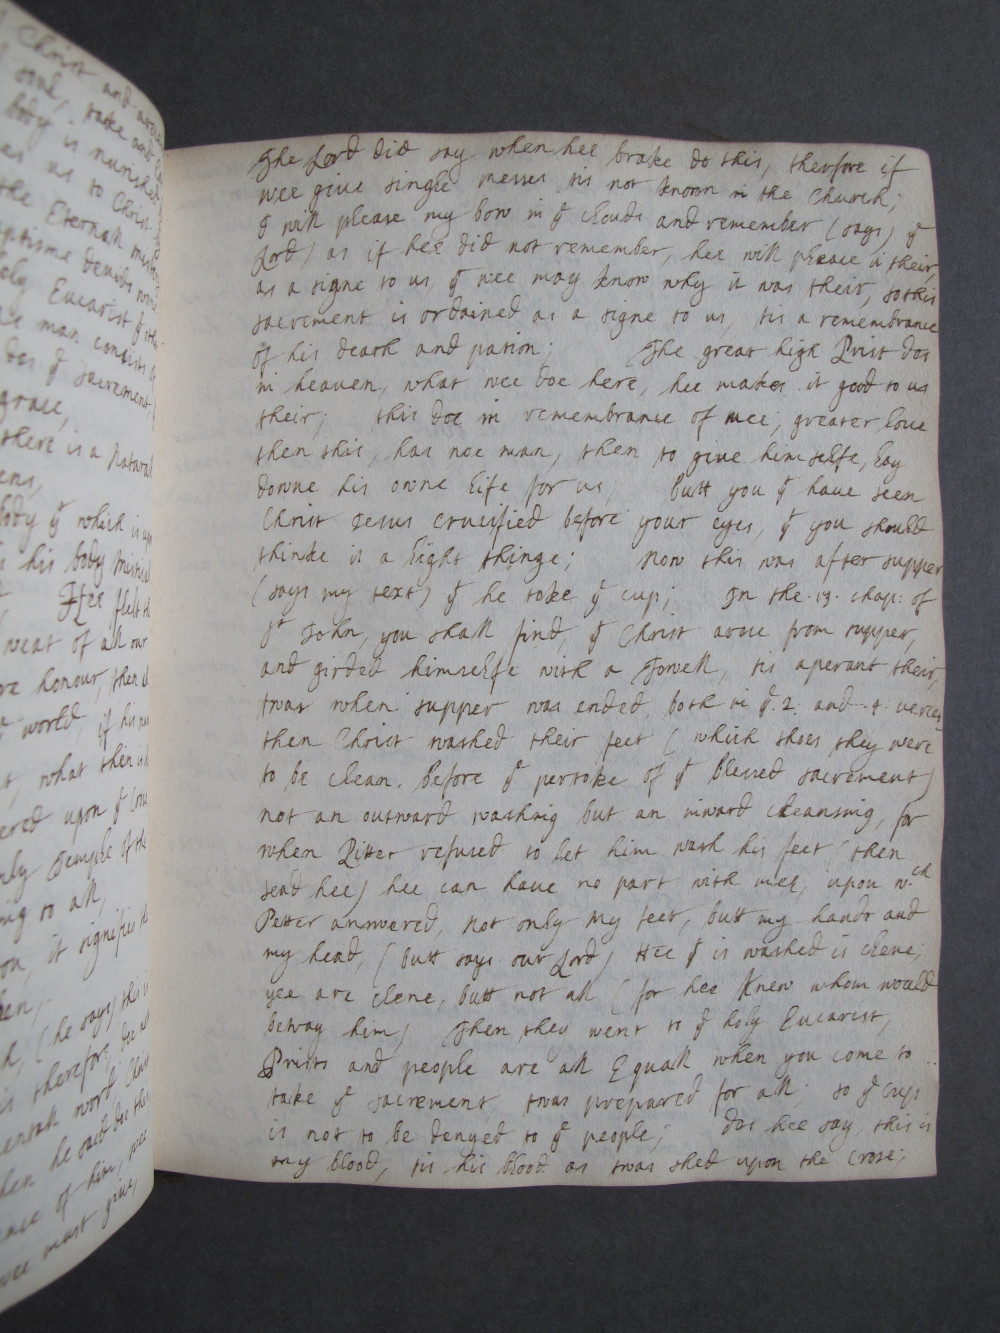 Christ and
soul, take and
body is nurished
es us to Christ
the Eternall
baptisme
holy Eucarist yt
man consists
dos ye sacrement
grace,
there is a Naturall
ens,
body yt which is
his body Misticall
Hee
neat of all our
honour, then
world, if his
t, what then
ered upon ye
only Temple of the
ing to all,
you, it signifies
hen,
(he says) this is
therefore, doe
ternall word
hen he said doe this
of him, wee
wee must give,
The Lord did say when hee brake do this, therfore if
wee give single messes tis not known in the Church;
I will please my bow in ye clouds and remember (says) ye
Lord) as if hee did not remember, hee will pleace it their,
as a signe to us, yt wee may know why it was their, so this
sacrement is ordained as a signe to us, tis a remembrance
of his death and pation; The great high Prist dos
in heaven, what wee doe here, hee makes it good to us
their; this doe in remembrance of mee; greater love
then this, has noe man, then to give himselfe, Lay
downe his owne Life for us; butt you yt have seen
Christ Jesus crucified before your eyes, yt you should
thinke is a Light thinge; Now this was after supper
(says my text) yt he toke ye cup; In the .13. chap: of
St John, you shall find, yt Christ arose from supper,
and girded himselfe with a Towell, tis aperant their,
twas when supper was ended, both in ye .2. and .4. verces
then Christ washed their feet ( which shoes they were
to be clean, before ye pertoke of ye blessed sacrement)
not an outward washing but an inward cleansing, for
when Pitter refused to let him wash his feet (then
sead hee) hee can have no part with mee, upon wch
Petter answered, not only my feet, butt my hands and
my head, (butt says our Lord) Hee yt is washed is clene,
yee are clene, butt not all (for hee knew whom would
betray him) Then they went to ye holy Eucarist,
Prists and people are all Equall when you come to
take ye sacrement twas prepared for all; so ye Cup
is not to be denyed to ye people; Dos hee say, this is
my blood, tis his blood as twas shed upon the Crose;